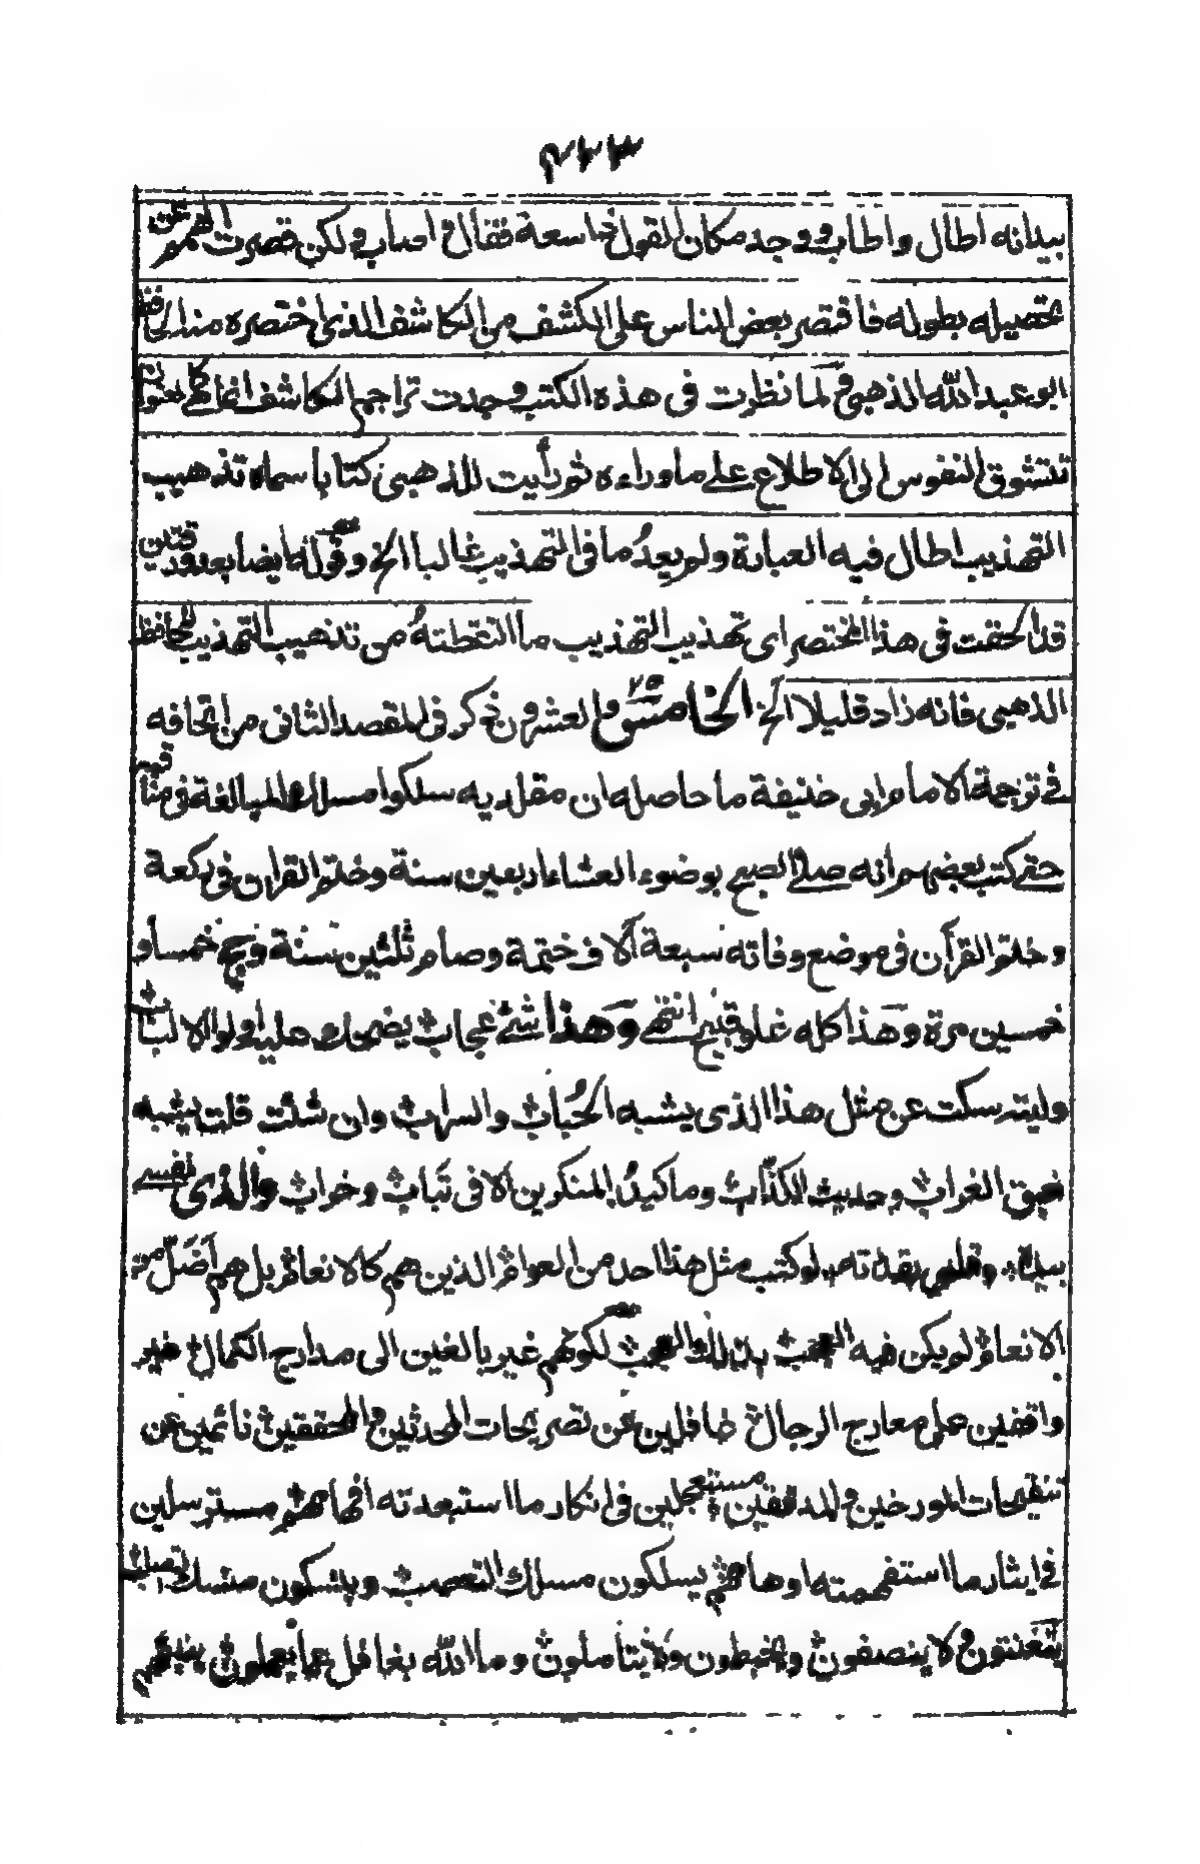 بيدانه اطال واطاب ووجد مكان القول ذا سعة فقال واصاب ولكن قصرت الهمم عن
تحصيله بطوله فاقتصر بعض الناس على الكشف من الكاشف الذى اختصره منه الحافظ
ابو عبد الله الذهبى ولما نظرت فى هذه الكتب وجدت تراجم الكاشف انما هى كالعنوان
تتشوق النفوس الى الاطلاع على ما وراءه ثم رأيت للذهبى كتابا سماه تذهيب
التهذيب اطال فيه العبارة ولم يعدُ ما فى التهذيب غالبا الخ وقوله ايضا بعد ورقتين
قد الحقت فى هذا المختصر اى تهذيب التهذيب ما التقطتهُ من تذهيب التهذيب للحافظ
الذهبى فانه زاد قليلا الخ الخامس ٢٥ والعشرون ذكر فى المقصد الثانى من اتحافه
فى ترجمة الامام ابى حنيفة ما حاصله ان مقلديه سلكوا مسلك المبالغة فى مناقبه
حتى كتب بعضهم انه صلى الصبح بوضوء العشاء اربعين سنة وختم القران فى ركعة
وختم القرآن فى موضع وفاته سبعة آلاف ختمة وصام ثلثين سنة وحج خمسا و
خمسين مرة وهذا كله غلو قبيح انتهى وهذا شئ عجاب يضحك عليه اولو الالباب
وليته سكت عن مثل هذا الذى يشبه الحُباب والسراب وان شئت قلت يشبه
نعيق الغراب وحديث الكذّاب وما كيدُ المنكرين الا فى تَباب وخراب والذى نفسى
بيده وقلبى بقدرته لو كتب مثل هذا احد من العوام الذين هم كالانعام بل هم أضَلّ من
الانعام لم يكن فيه العجب بذلك العجب لكونهم غير بالغين الى مدارج الكمال غير
واقفين على معارج الرجال غافلين عن تصريحات المحدثين والمحققين نائمين عن
تنقيحات المورخين والمدققين مستعجلين فى انكار ما استبعدته افهامهم مسترسلين
فى ايثار ما استفهمته اوهامهم يسلكون مسلك التعصب ويمسكون منسك التصلب
يتعنتون ولا ينصفون ويخبطون ولا يتأملون وما الله بغافل عما يعملون ينبئهم